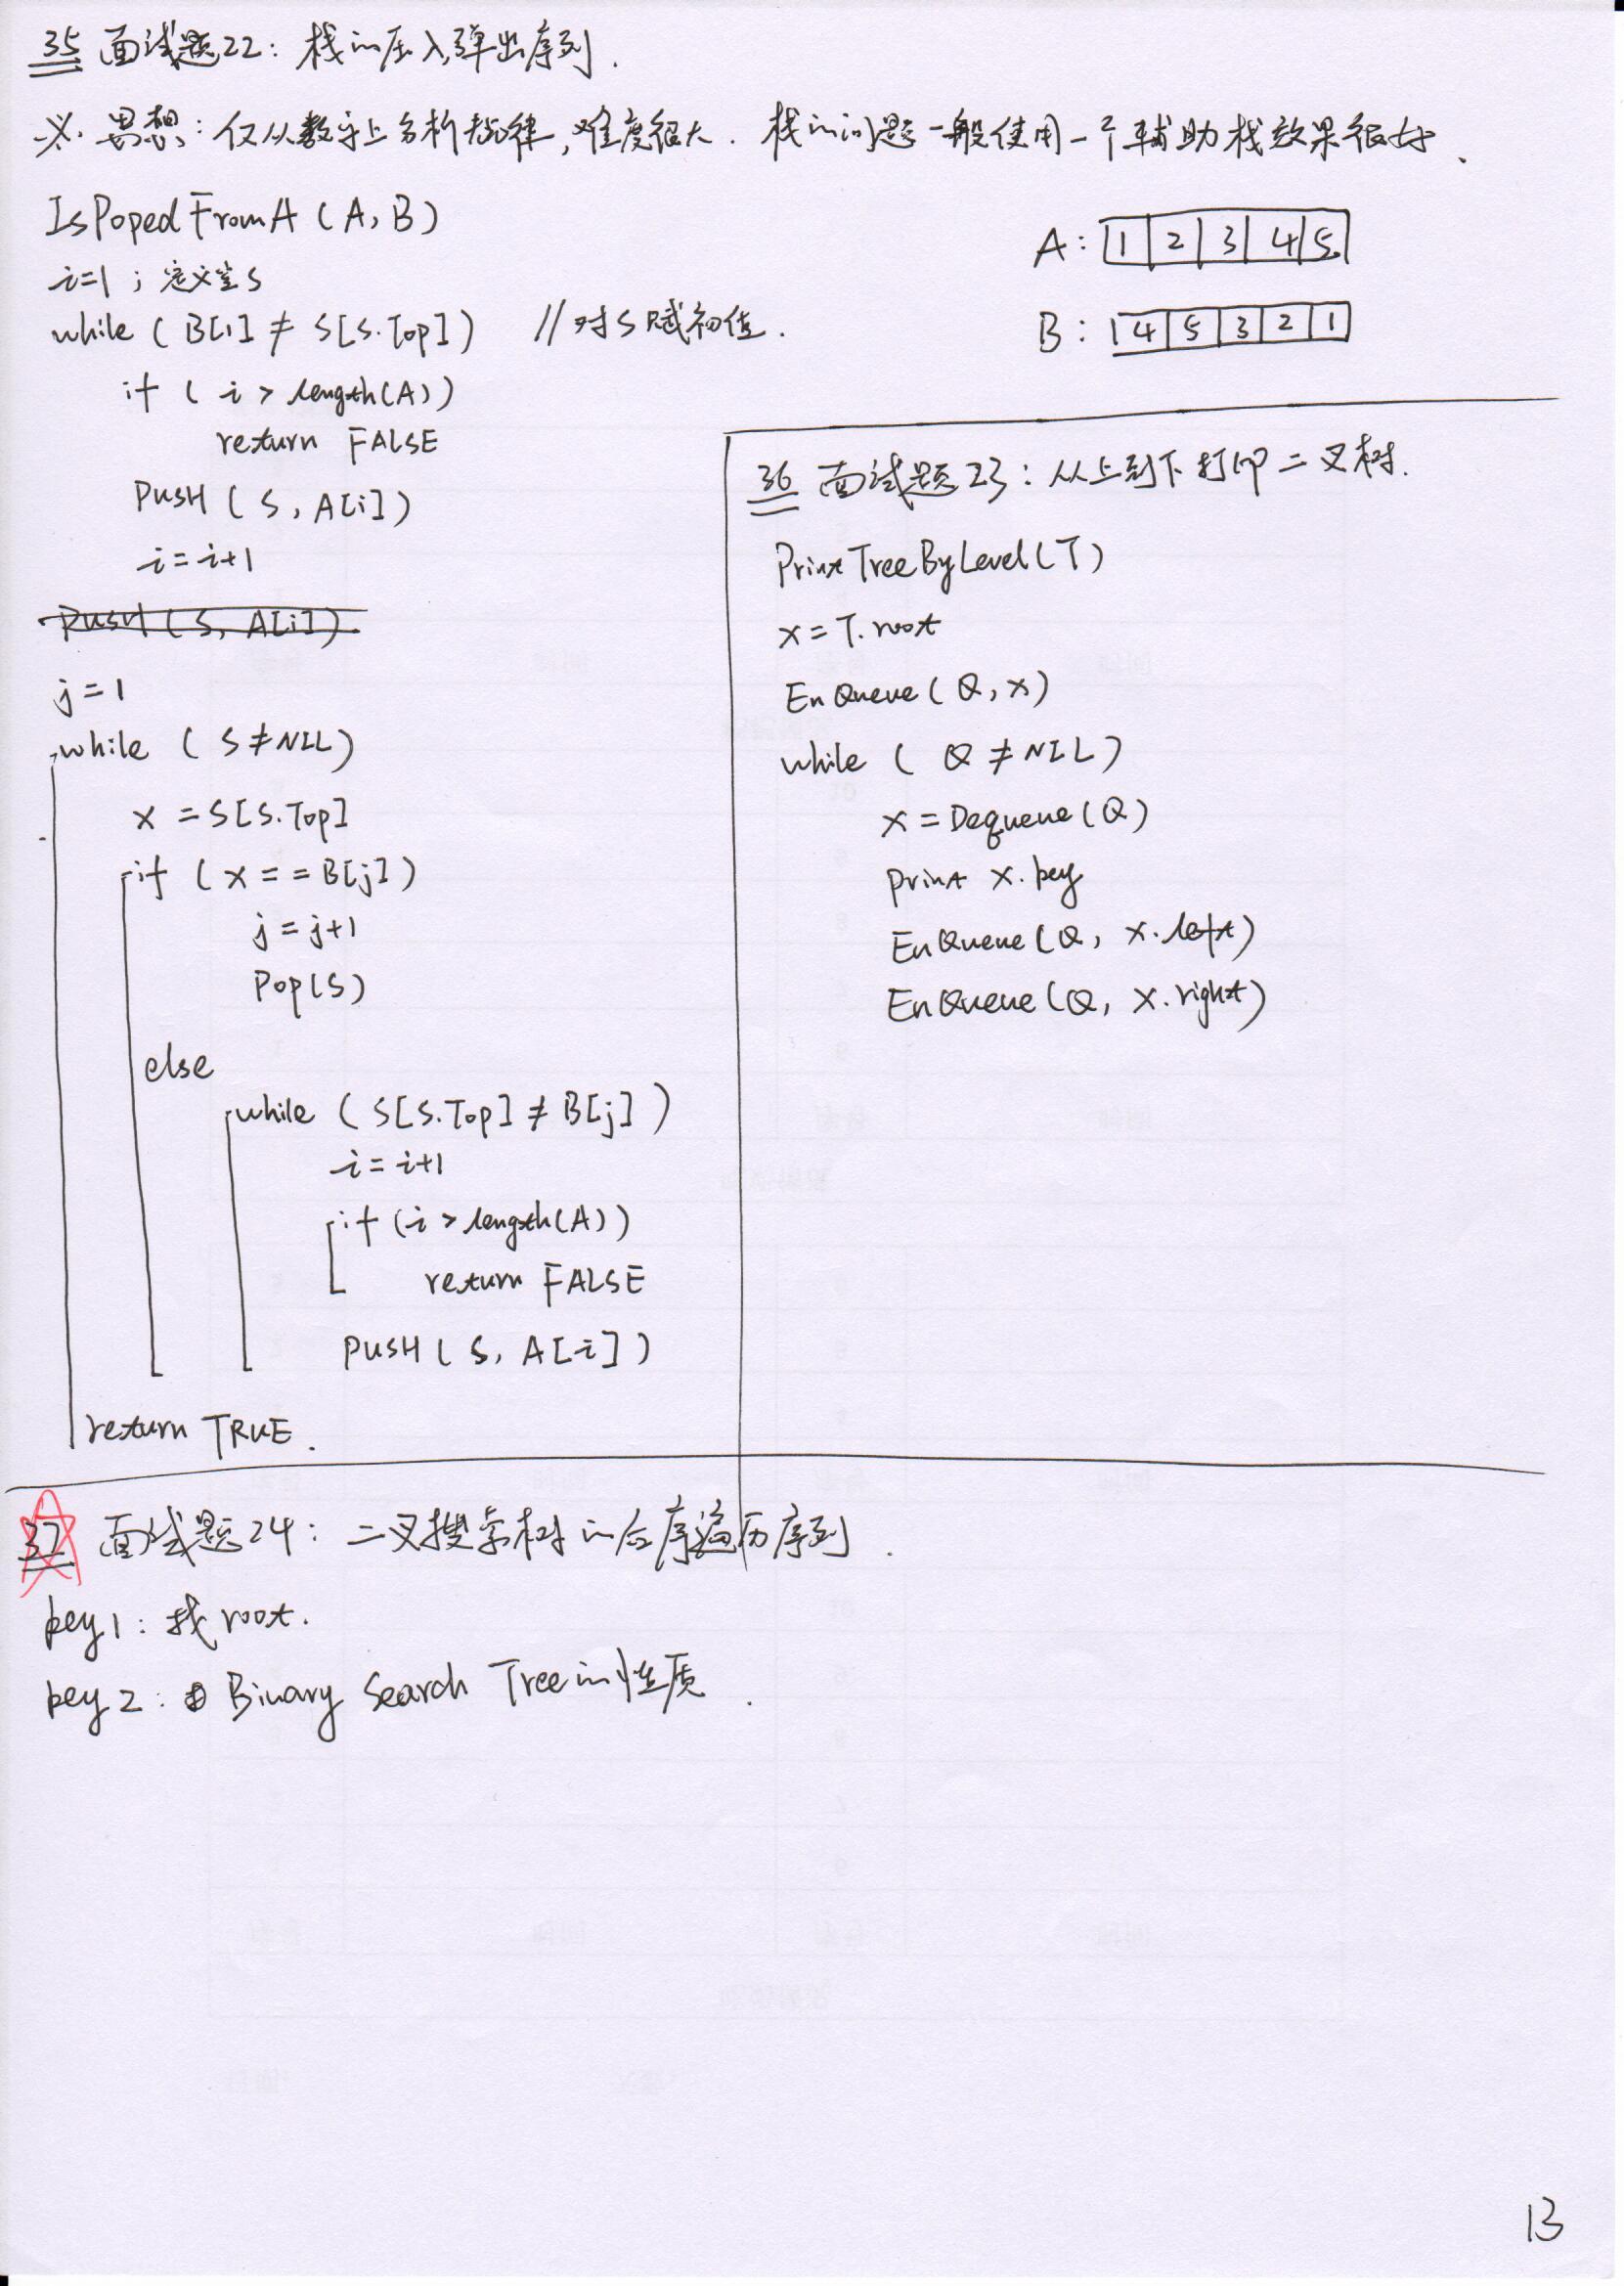 35 面试题22：栈的压入弹出序列.
※. 思想：仅从数字上分析规律,难度很大. 栈的问题一般使用一个辅助栈效果很好.
IsPopedFromA (A, B)
i=1; 定义空S
while ( B[1] ≠ S[S.Top]) // 对S赋初值.
if ( i > length(A))
return FALSE
PUSH ( S, A[i])
i = i+1
PUSH ( S, A[i])
j = 1
while ( S ≠ NIL)
x = S[S.Top]
if ( x == B[j] )
j = j+1
Pop(S)
else
while ( S[S.Top] ≠ B[j] )
i = i+1
if (i > length(A))
return FALSE
PUSH ( S, A[i] )
return TRUE.
A: 1 2 3 4 5
B: 4 5 3 2 1
36 面试题23：从上到下打印二叉树.
PrintTreeByLevel(T)
x = T.root
EnQueue(Q, x)
while ( Q ≠ NIL)
x = Dequeue(Q)
print x.key
EnQueue(Q, x.left)
EnQueue(Q, x.right)
37 面试题24：二叉搜索树的后序遍历序列.
key1: 找root.
key2: Binary Search Tree的性质.
13